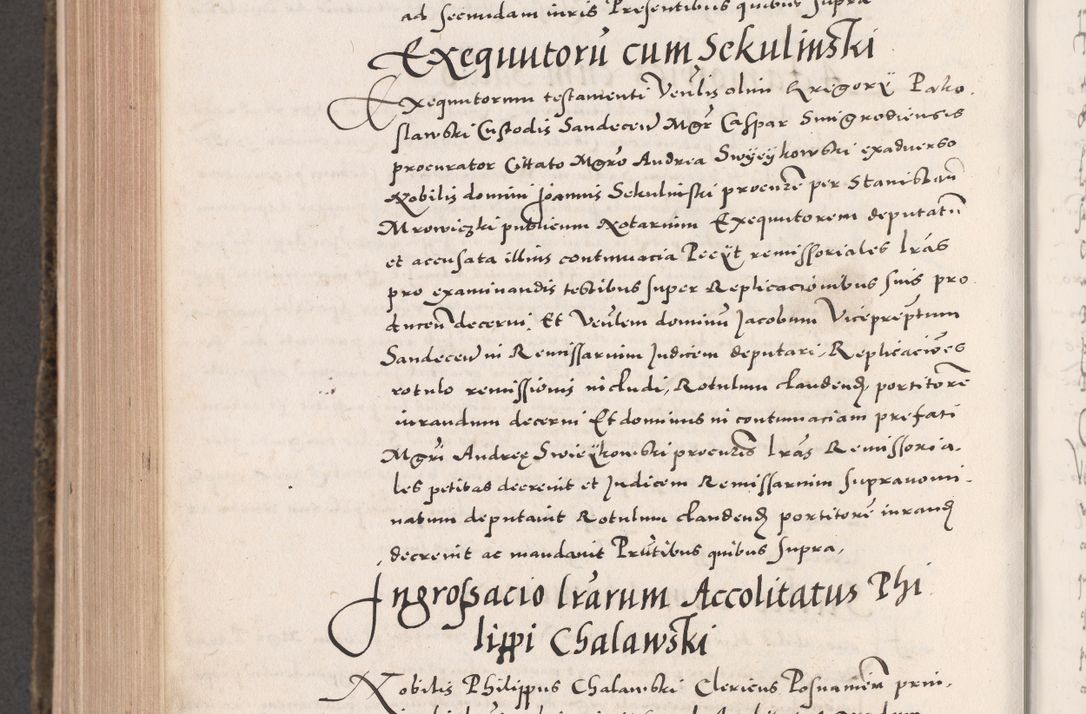 ad secundam iuris Presentibus quibus supra
Exequutorũ cum Sekulinski
Exequutorum testamenti Veñlis olim Gregorÿ Pako.
slawski Custodis Sandeceñ Mgr̃ Caspar Smigrodiensis
procurator Citato Mgrõ Andrea Swÿeÿkowski exadverso
Nobilis domini Joannis Sekulinski procure͂ per Stanislaũ
Mrowiczki publicum Notarium Exequutorem deputatũ
et accusata illius contumacia Pecÿt remissoriales lr̃as
pro examinandis testibus super Replicacionibus suis pro
duceñ decerni Et Veñlem dominũ Jacobum Vicepreptum
Sandeceñ in Remissarium Judicem deputari, Replicaciões
rotulo remissionis includi, Rotulum claudendȝ, portitorẽ
iurandum decerni Et dominus in contumaciam prefati
Mgri Andreę Swieÿkowski procuris lr̃as Remissoria-
les petitas decrevit et Judicem Remissarium supranomi-
natum deputavit Rotulum claudendȝ portitorẽ iurandȝ
decrevit ac mandavit Prñtibus quibus supra,
Ingrossacio lr̃arum Accolitatus Phi
lippi Chalawski
Nobilis Philippus Chalawski Clericus Posnanieñ prin-